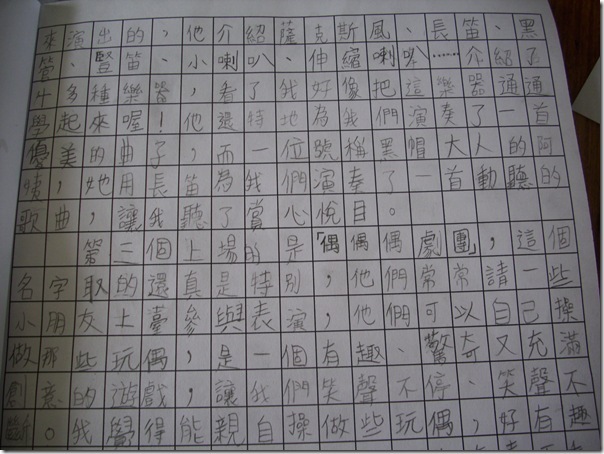 來演出的，他介紹薩克斯風、長笛、黑
管、豎笛、小喇叭、伸縮喇叭……介紹了
十多種樂器，看了我好像把這樂器通通
學起來喔！他還特地為我們演奏了一首
優美的曲子，而一位號稱黑帽大人的阿
姨，她用長笛為我們演奏了一首動聽的
歌曲，讓我聽了賞心悅目。
第三個上場的是「偶偶偶劇團」，這個
名字取的還真是特別，他們常常請一些
小朋友上臺參與表演，他們可以自己操
做那些玩偶，是一個有趣、驚奇又充滿
創意的遊戲，讓我們笑聲不停、笑聲不
斷。我覺得能親自操做些玩偶，好有趣